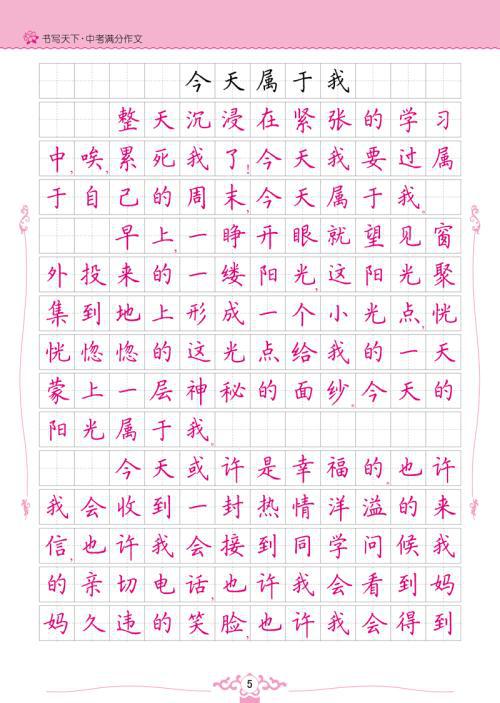 书写天下·中考满分作文
今天属于我
整天沉浸在紧张的学习
中,唉,累死我了!今天我要过属
于自己的周末,今天属于我。
早上,一睁开眼就望见窗
外投来的一缕阳光,这阳光聚
集到地上形成一个小光点,恍
恍惚惚的这光点给我的一天
蒙上一层神秘的面纱。今天的
阳光属于我。
今天或许是幸福的。也许
我会收到一封热情洋溢的来
信,也许我会接到同学问候我
的亲切电话,也许我会看到妈
妈久违的笑脸,也许我会得到
5